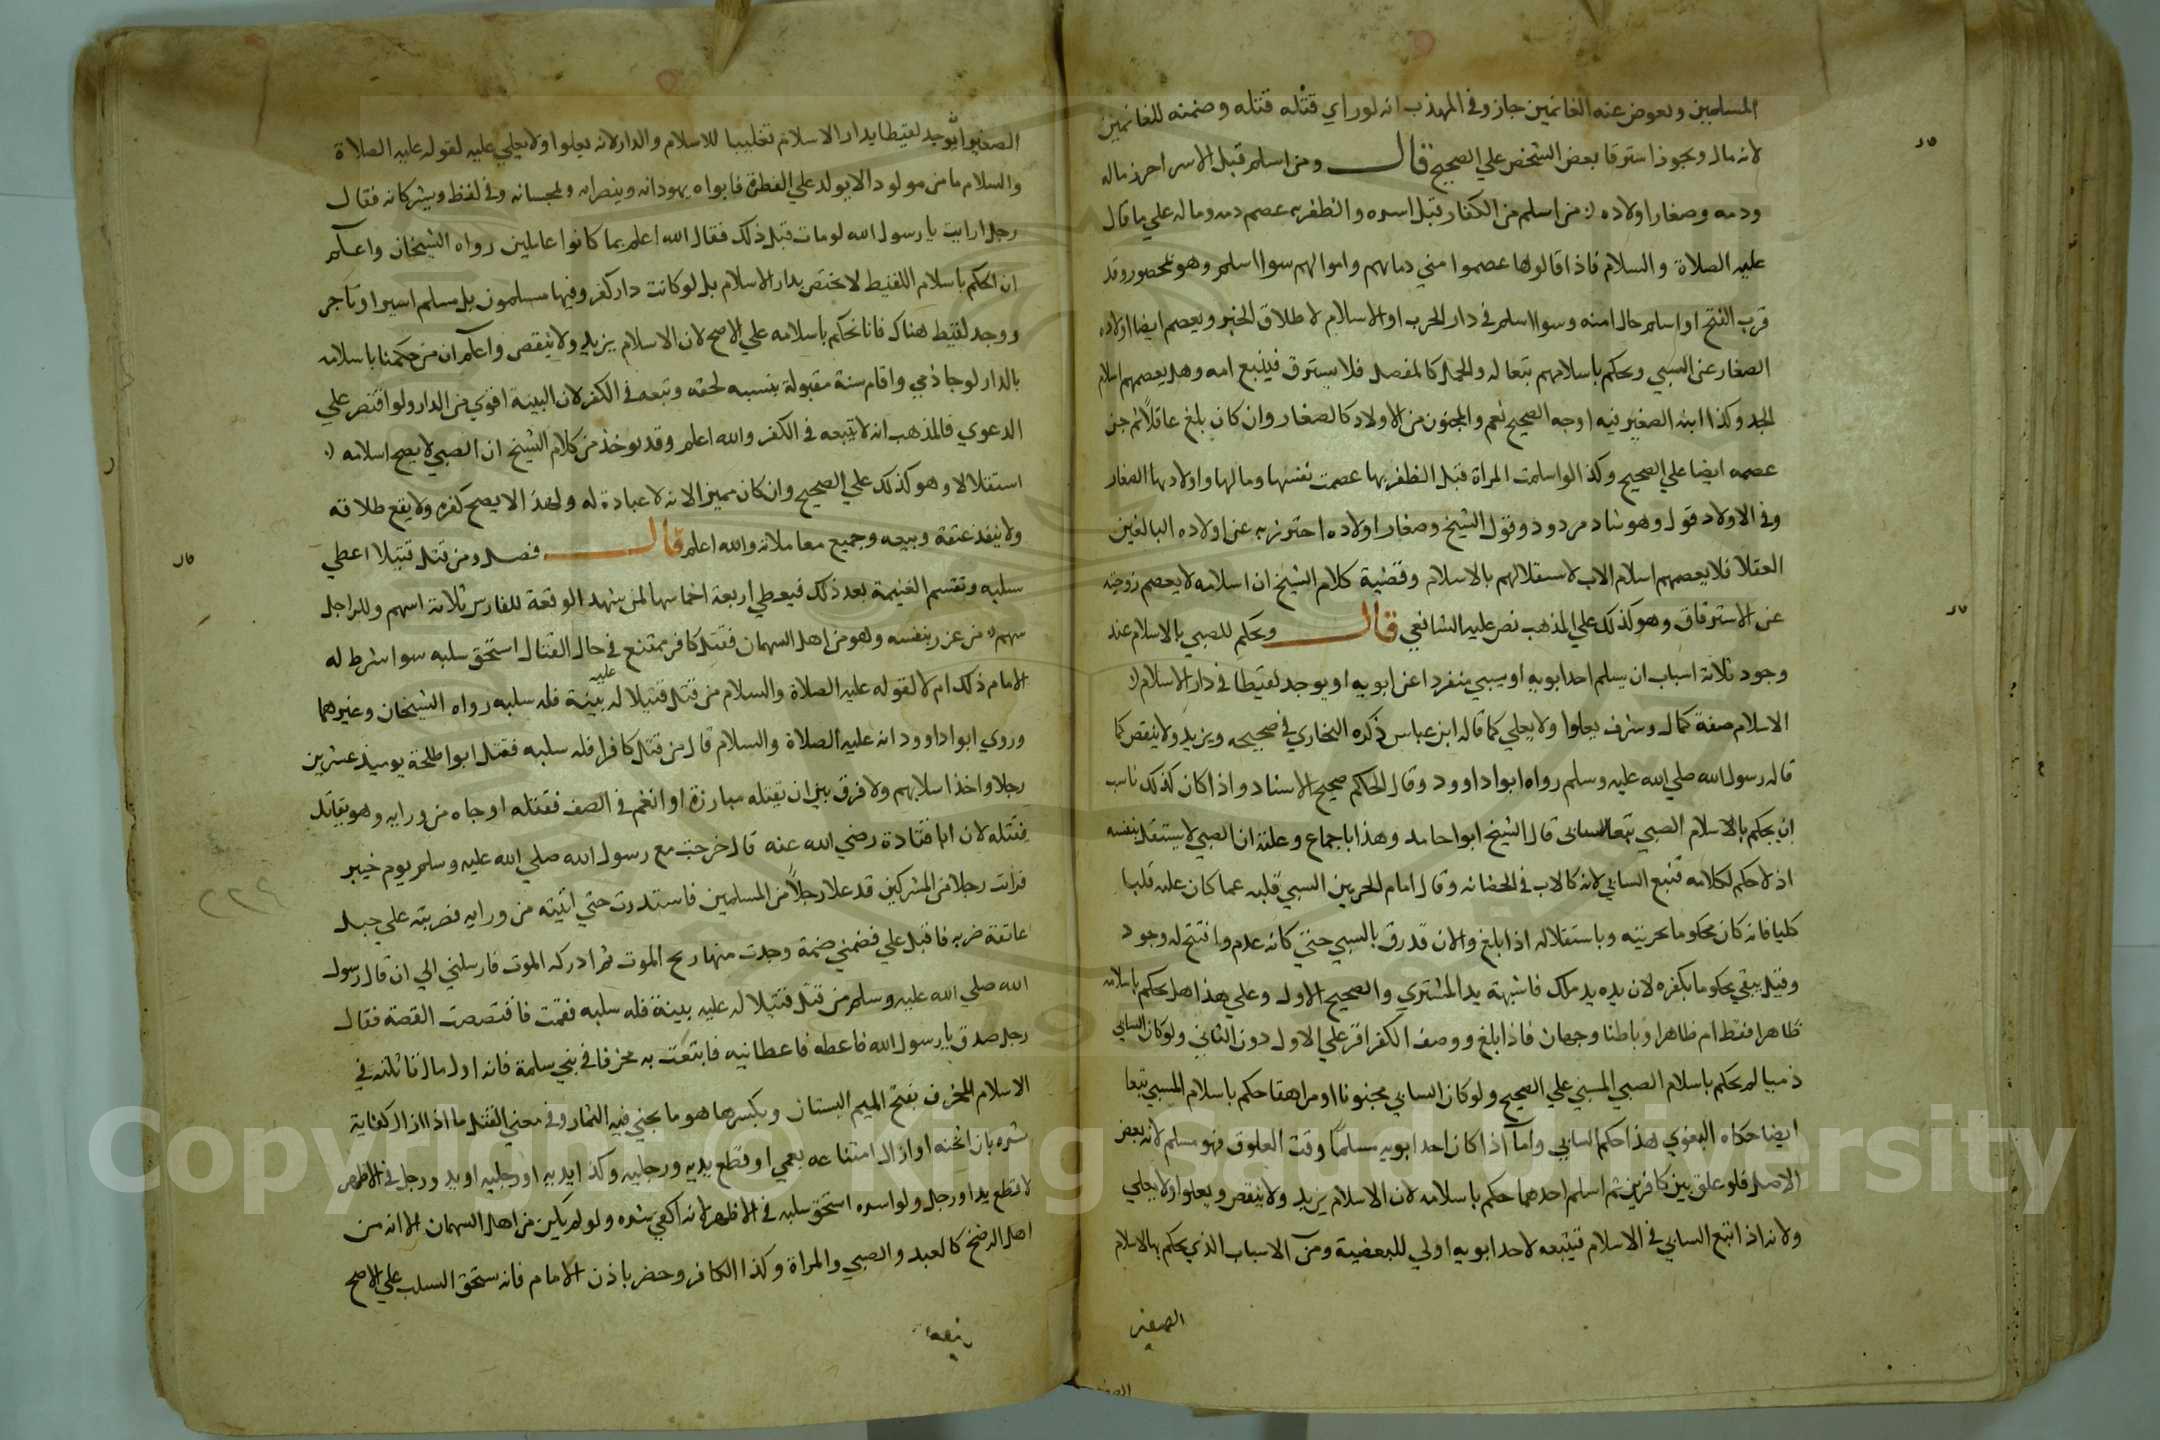 المسلمين ويعوض عنه الغانمين جاز وفي المهذب انه لو راي قتله قتله وضمنه للغانمين
لانه مال ويجوز استرقا بعض الشخص علي الصحيح قال ومن اسلم قبل الاسر احرز ماله
ودمه وصغار اولاده من اسلم من الكفار قبل اسره والظفر به عصم دمه وماله علي ما قال
عليه الصلاة والسلام فاذا قالوها عصموا مني دماهم واموالهم سوا اسلم وهو محصور وقد
قرب الفتح او اسلم حال امنه وسوا اسلم في دار الحرب او الاسلام لاطلاق الخبر ويعصم ايضا اولاده
الصغار عن السبي ويحكم باسلامهم تبعا له والحمل كالمنفصل فلا يسترق فيتبع امه وهل يعصمهم اسلام
الجد وكذا ابنه الصغير فيه اوجه الصحيح نعم والمجنون من الاولاد كالصغار وان كان بلغ عاقلا ثم جن
عصمه ايضا علي الصحيح وكذا لو اسلمت المراة قبل الظفر بها عصمت نفسها ومالها واولادها الصغار
وفي الاولاد قول وهو شاد مردود وقول الشيخ وصغار اولاده احترز به عن اولاده البالغين
العقلا فلا يعصمهم اسلام الاب لاستقلالهم بالاسلام وقضية كلام الشيخ ان اسلامه لا يعصم زوجته
عن الاسترقاق وهو كذلك علي المذهب نص عليه الشافعي قال ويحكم للصبي بالاسلام عند
وجود ثلاثة اسباب ان يسلم احد ابويه او يسبي منفردا عن ابويه او يوجد لقيطا في دار الاسلام
الاسلام صفة كمال وشرف يعلوا ولا يعلي كما قاله ابن عباس ذكره البخاري في صحيحه ويزيد ولا ينقص كما
قاله رسول الله صلي الله عليه وسلم رواه ابوا داوود وقال الحكم صحيح الاسناد واذا كان كذلك ناسب
ان يحكم بالاسلام الصبي تبعا للسابي قال الشيخ ابوا حامد وهذا باجماع وعلته ان الصبي لا يستقل بنفسه
اذ لا حكم لكلامه فتبع السابي لانه كالاب في الحضانه وقال امام الحرمين السبي قلبه عما كان عليه قلبا
كليا فانه كان محكوما بحريته وباستقلاله اذا بلغ والان قد رق بالسبي حتي كانه عدم وافتتح له وجود
وقيل يبقي محكوما بكفره لان يده يد ملك فاشبهته يد المشتري والصحيح الاول وعلي هذا هل يحكم باسلامه
ظاهرا فقط ام ظاهرا وباطنا وجهان فاذا بلغ ووصف الكفر اقر علي الاول دون الثاني ولو كان السابي
ذميا لم يحكم باسلام الصبي المسبي علي الصحيح ولو كان السابي مجنونا او مراهقا حكم باسلام المسبي تبعا
ايضا حكاه البغوي هذا حكم السابي واما اذا كان احد ابويه مسلما وقت العلوق فهو مسلم لانه بعض
الاصل فلو علق بين كافرين ثم اسلم احدهما حكم باسلامه لان الاسلام يزيد ولا ينقص ويعلوا ولا يعلي
ولانه اذا تبع السابي في الاسلام فتبعه لاحد ابويه اولي للبعضية ومن الاسباب الذي يحكم بالاسلام
الصغير
قال
قال
الصغير ان يوجد لقيطا بدار الاسلام تغليبا للاسلام والدار لانه يعلوا ولا يعلي عليه لقوله عليه الصلاة
والسلام ما من مولود الا يولد علي الفطرة فابواه يهودانه وينصرانه ويمجسانه وفي لفظ ويشركانه فقال
رجل ارايت يا رسول الله لو مات قبل ذلك فقال الله اعلم بما كانوا عاملين رواه الشيخان واعلم
ان الحكم باسلام اللقيط لا يختص بدار الاسلام بل لو كانت دار كفر وفيها مسلمون بل مسلم اسير او تاجر
ووجد لقيط هناك فانا نحكم باسلامه علي الاصح لان الاسلام يزيد ولا ينقص واعلم ان من حكمنا باسلامه
بالدار لو جا ذمي واقام بينة مقبولة بنسبه لحقه وتبعه في الكفر لان البينة اقوي من الدار ولو اقتصر علي
الدعوي فالمذهب انه لا يتبعه في الكفر والله اعلم وقد يوخذ من كلام الشيخ ان الصبي لا يصح اسلامه
استقلالا وهو كذلك علي الصحيح وان كان مميزا لانه لا عبادة له ولهذا لا يصح كفره ولا يقع طلاقه
ولا ينفذ عتقه وبيعه وجميع معاملاته والله اعلم قال فصل ومن قتل قتيلا اعطي
سلبه وتقسم الغنيمة بعد ذلك فيعطي اربعة اخماسها لمن شهد الوقعة للفارس ثلاثة اسهم وللراجل
سهم من غرر بنفسه وهو من اهل السهمان فقتل كافر ممتنع في حال القتال استحق سلبه سوا شرط له
الامام ذلك ام لا لقوله عليه الصلاة والسلام من قتل قتيلا له عليه بينة فله سلبه رواه الشيخان وغيرهما
وروي ابوا داوود انه عليه الصلاة والسلام قال من قتل كافرا فله سلبه فقتل ابوا طلحة يوميذ عشرين
رجلا واخذ اسلابهم ولا فرق بين ان يقتله مبارزة او انغم في الصف فقتله او جاه من ورايه وهو يقاتل
فقتله لان ابا قتادة رضي الله عنه قال خرجت مع رسول الله صلي الله عليه وسلم يوم خيبر
فرايت رجلا من المشركين قد علا رجلا من المسلمين فاستدرت حتي اتيته من ورايه فضربته علي حبل
عاتقه ضربه فاقبل علي فضمني ضمة وجدت منها ريح الموت ثم ادركه الموت فارسلني الي ان قال رسول
الله صلي الله عليه وسلم من قتل قتيلا له عليه بينة فله سلبه فقمت فاقتصصت القصة فقال
رجل صدق يا رسول الله فاعطه فاعطانيه فابتعت به مخرفا في بني سلمة فانه اول مال تاثلته في
الاسلام المخرف بفتح الميم البستان وبكسرها هو ما يجني فيه الثمار وفي معني القتل ما اذا ازال كفاية
شره بان اثخنه او ازال امتناعه بعمي او قطع يديه ورجليه وكذا يديه او رجليه او يد ورجل في الاظهر
لا قطع يد او رجل ولو اسره استحق سلبه في الاظهر لانه اكفي شره ولو لم يكن من اهل السهمان الا انه من
اهل الرضخ كالعبد والصبي والمراة وكذا الكافر وحضر باذن الامام فانه يستحق السلب علي الاصح
قال
٢٢٩
Copyright © King Saud University